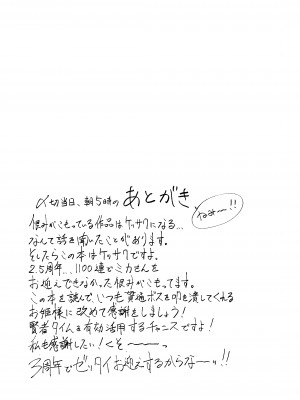 〆切当日、朝5時の あとがき
ねみー!!
恨みがこもっている作品はケッサクになる…
なんて話を聞いたことがあります。
そしたらこの本はケッサクですよ。
2.5周年…1100連でミカさんを
お迎えできなかった恨みがこもってます。
この本を読んで、いつも賞過ボスを叩き潰してくれる
お姫様に改めて感謝をしましょう!
賢者タイムを有効活用するチャンスですよ!
私も感謝したい!くそ~~~~っ
3周年でゼッタイお迎えするからなーッ!!